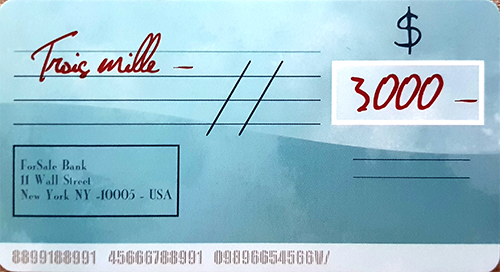 $ 3000 -
Trois mille -
ForSale Bank
11 Wall Street
New York NY -10005 - USA
8899188991 45666788991 098966545666W/